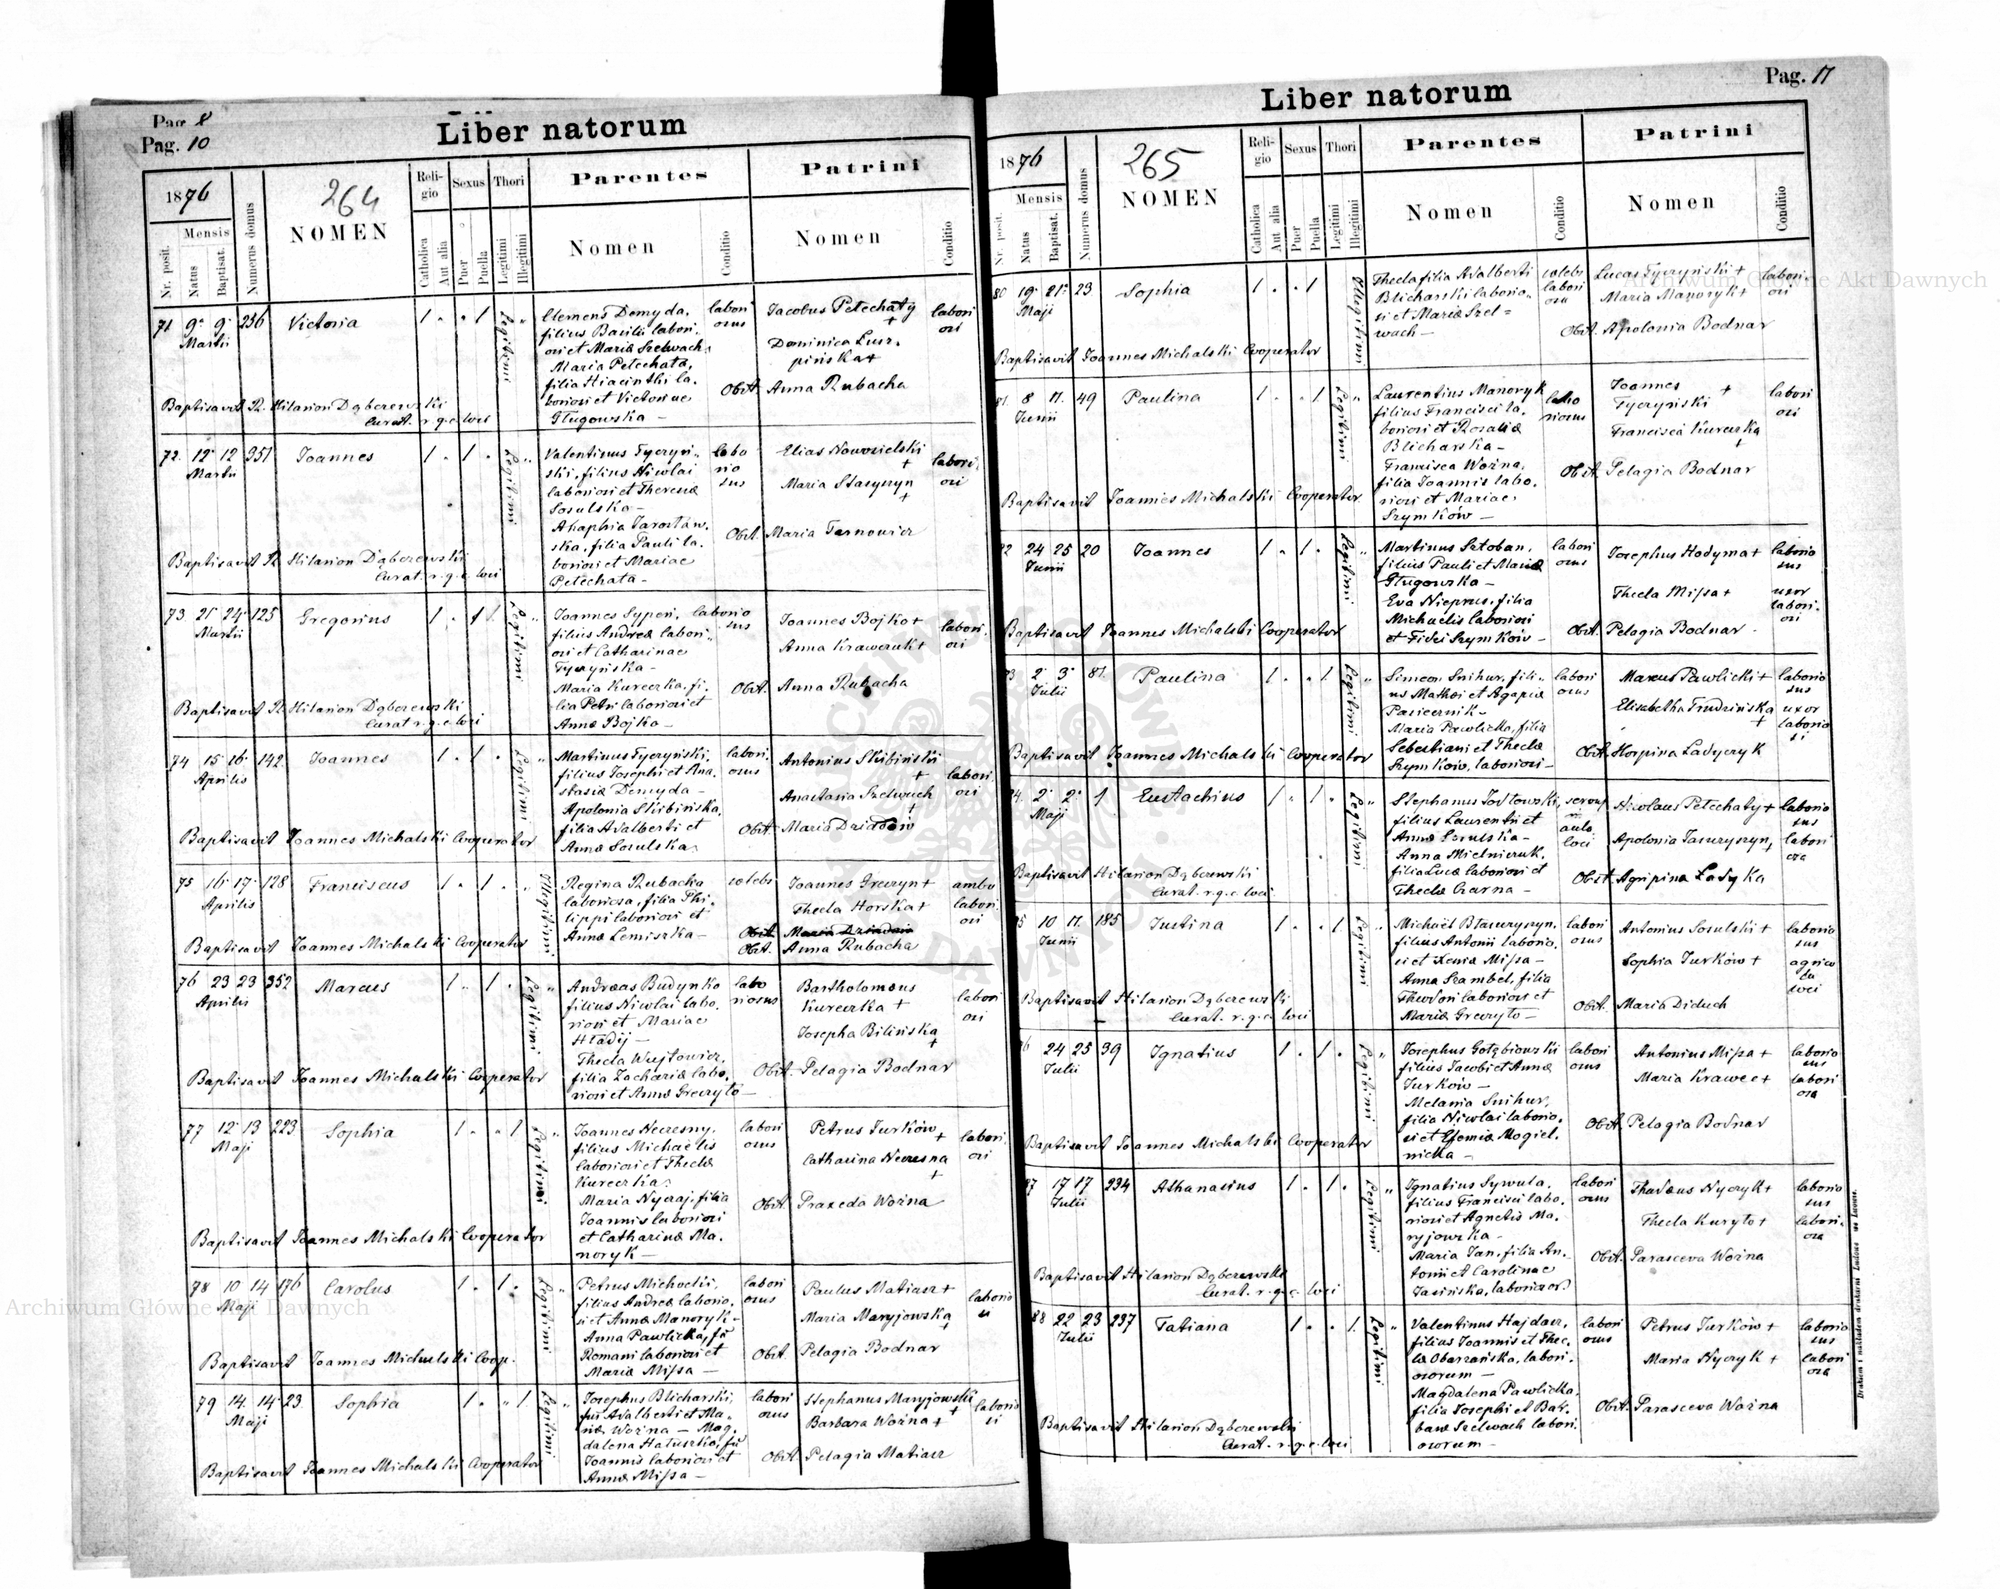 Pag. 8
Pag. 10
Liber natorum
1876
264
NOMEN
Mensis
Nr. posit.
Natus
Baptisat.
Numerus domus
Reli-
gio
Sexus
Thori
Catholica
Aut alia
Puer
Puella
Legitimi
Illegitimi
Parentes
Nomen
Conditio
Patrini
Nomen
Conditio
71 9 9 236 Victoria 1 . . 1 Legitimi
Martii
Clemens Demyda,
filius Basilii labori
osi et Mariæ Szelwach,
Maria Petechata,
filia Hiacinthi la
boriosi et Victoriae
Gługowska —
labori
osus
Jacobus Petechaty +
Dominica Lusz
pińska +
Obst. Anna Rubacha
labori
osi
Baptisavit R. Hilarion Dąbczewski
Curat. r.g.c. loci
72. 12 12 351 Joannes 1 . 1 . Legitimi
Martii
Valentinus Tyczyń
ski, filius Nicolai
laboriosi et Theresiæ
Sosulska —
Ahaphia Jarosław
ska, filia Pauli la
boriosi et Mariae
Petechata —
labo
rio
sus
Elias Nowosielski
+
Maria Stasyszyn
+
Obst. Maria Tarnowicz
labori
osi
Baptisavit R. Hilarion Dąbczewski
Curat. r.g.c. loci
73 21 24 125 Gregorius 1 . 1 . Legitimi
Martii
Joannes Sypen,
filius Andreæ labori
osi et Catharinae
Tyczyńska —
Maria Kureczka, fi
lia Petri laboriosi et
Annæ Bojko —
laborio
sus
Joannes Bojko +
Anna Krawczuk +
Obst. Anna Rubacha
labori
osi
Baptisavit R. Hilarion Dąbczewski
Curat r.g.c. loci
74 15 16 142 Joannes 1 . 1 . Legitimi
Aprilis
Martinus Tyczyński,
filius Josephi et Ana
stasiæ Demyda —
Apolonia Skibińska,
filia Adalberti et
Annæ Sosulska
labori
osus
Antonius Skibiński
+
Anastasia Szelwach
+
Obst. Maria Dziadów
labori
osi
Baptisavit Joannes Michalski Cooperator
75 16 17 128 Franciscus 1 . 1 . Illegitimi
Aprilis
Regina Rubacha
laboriosa, filia Phi
lippi laboriosi et
Annæ Lemiszka —
celebs
Joannes Greczyn +
Thecla Horska +
Obst. Maria Dziadów
Obst. Anna Rubacha
ambo
labori
osi
Baptisavit Joannes Michalski Cooperator
76 23 23 352 Marcus 1 . 1 . Legitimi
Aprilis
Andreas Budynko
filius Nicolai labo
riosi et Mariae
Hładij —
Thecla Wujtowicz,
filia Zachariæ labo
riosi et Annæ Greczyło —
labo
riosus
Bartholomeus
Kureczka +
Josepha Bilińska
+
Obst. Pelagia Bodnar
labori
osi
Baptisavit Joannes Michalski Cooperator
77 12 13 223 Sophia 1 . . 1 Legitimi
Maji
Joannes Neczesny,
filius Michaelis
laboriosi et Theclæ
Kureczka,
Maria Nyczaj, filia
Joannis laboriosi
et Catharinæ Ma
noryk —
labori
osus
Petrus Jurków +
Catharina Neczesna
+
Obst. Praxeda Woźna
labori
osi
Baptisavit Joannes Michalski Cooperator
78 10 14 176 Carolus 1 . 1 . Legitimi
Maji
Petrus Michocki,
filius Andreæ laborio
si et Annæ Manoryk —
Anna Pawlicka, fil
Romani laboriosi et
Mariæ Missa —
labori
osus
Paulus Matiasz +
Maria Maryjowska
+
Obst. Pelagia Bodnar
laborio
si
Baptisavit Joannes Michalski Coop.
79 14 14 23 Sophia 1 . . 1 Legitimi
Maji
Josephus Blicharski,
fil Adalberti et Ma
riæ Woźna — Mag
dalena Hałuszka, fil
Joannis laboriosi et
Annæ Missa —
labori
osus
Stephanus Maryjowski
+
Barbara Woźna +
Obst. Pelagia Matiasz
laborio
si
Baptisavit Joannes Michalski Cooperator
Pag. 11
Liber natorum
1876
265
NOMEN
Mensis
Nr. posit.
Natus
Baptisat.
Numerus domus
Reli-
gio
Sexus
Thori
Catholica
Aut alia
Puer
Puella
Legitimi
Illegitimi
Parentes
Nomen
Conditio
Patrini
Nomen
Conditio
80 19 21 23 Sophia 1 . . 1 Illegitimi
Maji
Thecla filia Adalberti
Blicharski laborio
si et Mariæ Szel=
wach —
celebs
labori
osa
Lucas Tyczyński +
Maria Manoryk +
Obst. Apolonia Bodnar
labori
osi
Baptisavit Joannes Michalski Cooperator
81 8 11 49 Paulina 1 . . 1 Legitimi
Junii
Laurentius Manoryk
filius Francisci la
boriosi et Rosaliæ
Blicharska —
Francisca Woźna,
filia Joannis labo
riosi et Mariae
Szymków —
labo
riosus
Joannes
Tyczyński +
Francisca Kureczka
+
Obst. Pelagia Bodnar
labori
osi
Baptisavit Joannes Michalski Cooperator
82 24 25 20 Joannes 1 . 1 . Legitimi
Junii
Martinus Sztoban,
filius Pauli et Mariæ
Gługowska —
Eva Nieprus, filia
Michaelis laboriosi
et Fidei Szymków —
labori
osus
Josephus Hodyma +
Thecla Missa +
Obst. Pelagia Bodnar
laborio
sus
uxor
labori
osi
Baptisavit Joannes Michalski Cooperator
83 2 3 81 Paulina 1 . . 1 Legitimi
Julii
Simeon Snihur, fili
us Mathei et Agapiæ
Pasiecznik —
Maria Pawlicka, filia
Sebestiani et Theclæ
Szymków, laboriosi —
labori
osus
Marcus Pawlicki +
Elisabetha Trudzińska
+
Obst. Horpina Ladyczyk
laborio
sus
uxor
laborio
si
Baptisavit Joannes Michalski Cooperator
84 2 2 1 Eustachius 1 . 1 . Legitimi
Maji
Stephanus Jodłowski,
filius Laurentii et
Annæ Sosulska —
Anna Mielniczuk,
filia Lucæ laboriosi et
Theclæ Czarna —
aulæ
loci
Nicolaus Petechaty +
Apolonia Tasuryszyn +
Obst. Agripina Ladyka
laborio
sus
labori
osa
Baptisavit Hilarion Dąbczewski
Curat. r.g.c. loci
85 10 11 185 Justina 1 . . 1 Legitimi
Junii
Michaël Btasuryszyn,
filius Antonii laborio
si et Xeniæ Missa —
Anna Szambel, filia
Theodori laboriosi et
Mariæ Greczyło —
labori
osus
Antonius Sosulski +
Sophia Jurków +
Obst. Maria Diduch
laborio
sus
agrico
la
loci
Baptisavit Hilarion Dąbczewski
Curat. r.g.c. loci
86 24 25 39 Ignatius 1 . 1 . Legitimi
Julii
Josephus Gołębiowski
filius Jacobi et Annæ
Jurków —
Melania Snihur,
filia Nicolai laborio
si et Efemiæ Mogiel
nicka —
labori
osus
Antonius Missa +
Maria Krawiec +
Obst. Pelagia Bodnar
laborio
sus
labori
osa
Baptisavit Joannes Michalski Cooperator
87 17 17 234 Athanasius 1 . 1 . Legitimi
Julii
Ignatius Sywula,
filius Francisci labo
riosi et Agnetis Ma
ryjowska —
Maria Jan, filia An
tonii et Carolinae
Jasińska, laboriosor.
labori
osus
Thadeus Nyczyk +
Thecla Kuryło +
Obst. Parasceva Woźna
laborio
sus
labori
osa
Baptisavit Hilarion Dąbczewski
Curat. r.g.c. loci
88 22 23 237 Tatiana 1 . . 1 Legitimi
Julii
Valentinus Hajdasz,
filius Joannis et Thec
læ Obarzańska, labori
osorum —
Magdalena Pawlicka,
filia Josephi et Bar
baræ Szelwach labori
osorum —
labori
osus
Petrus Jurków +
Maria Nyczyk +
Obst. Parasceva Woźna
laborio
sus
labori
osa
Baptisavit Hilarion Dąbczewski
Curat. r.g.c. loci
Drukiem i nakładem drukarni Ludowe we Lwowie.
Archiwum Główne Akt Dawnych
Archiwum Główne Akt Dawnych
ARCHIWUM GŁÓWNE AKT DAWNYCH